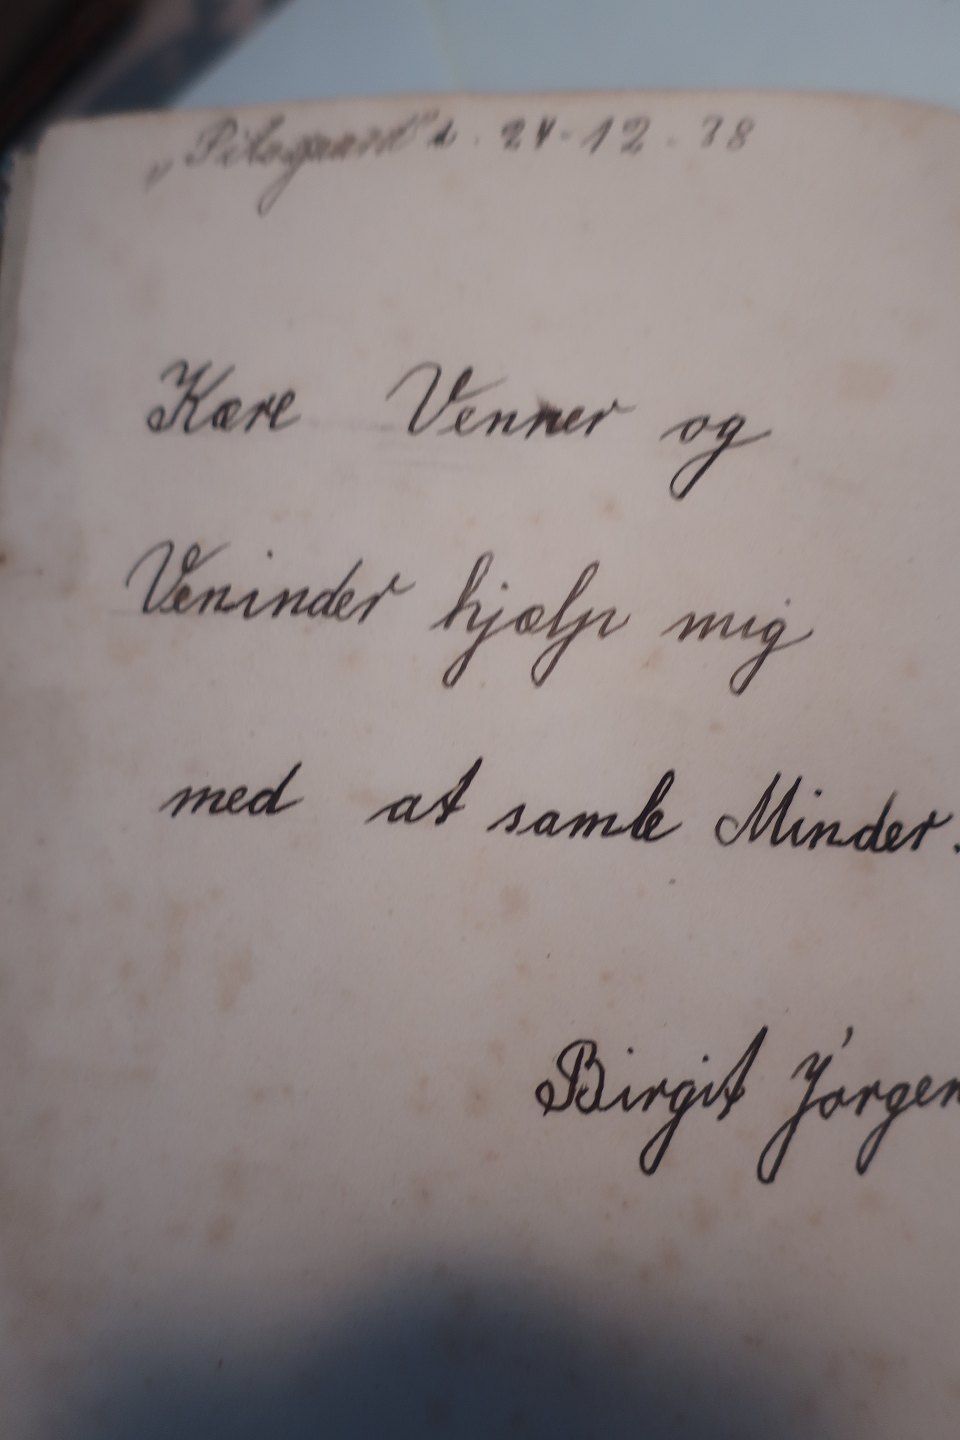 „Pilegaard" d. 24-12-38
Kære Venner og
Veninder hjælp mig
med at samle Minder.
Birgit Jørgen